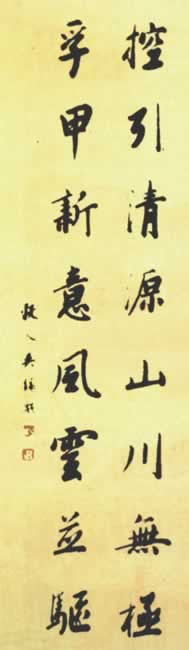 控引清源山川無極
孚甲新意風雲並驅